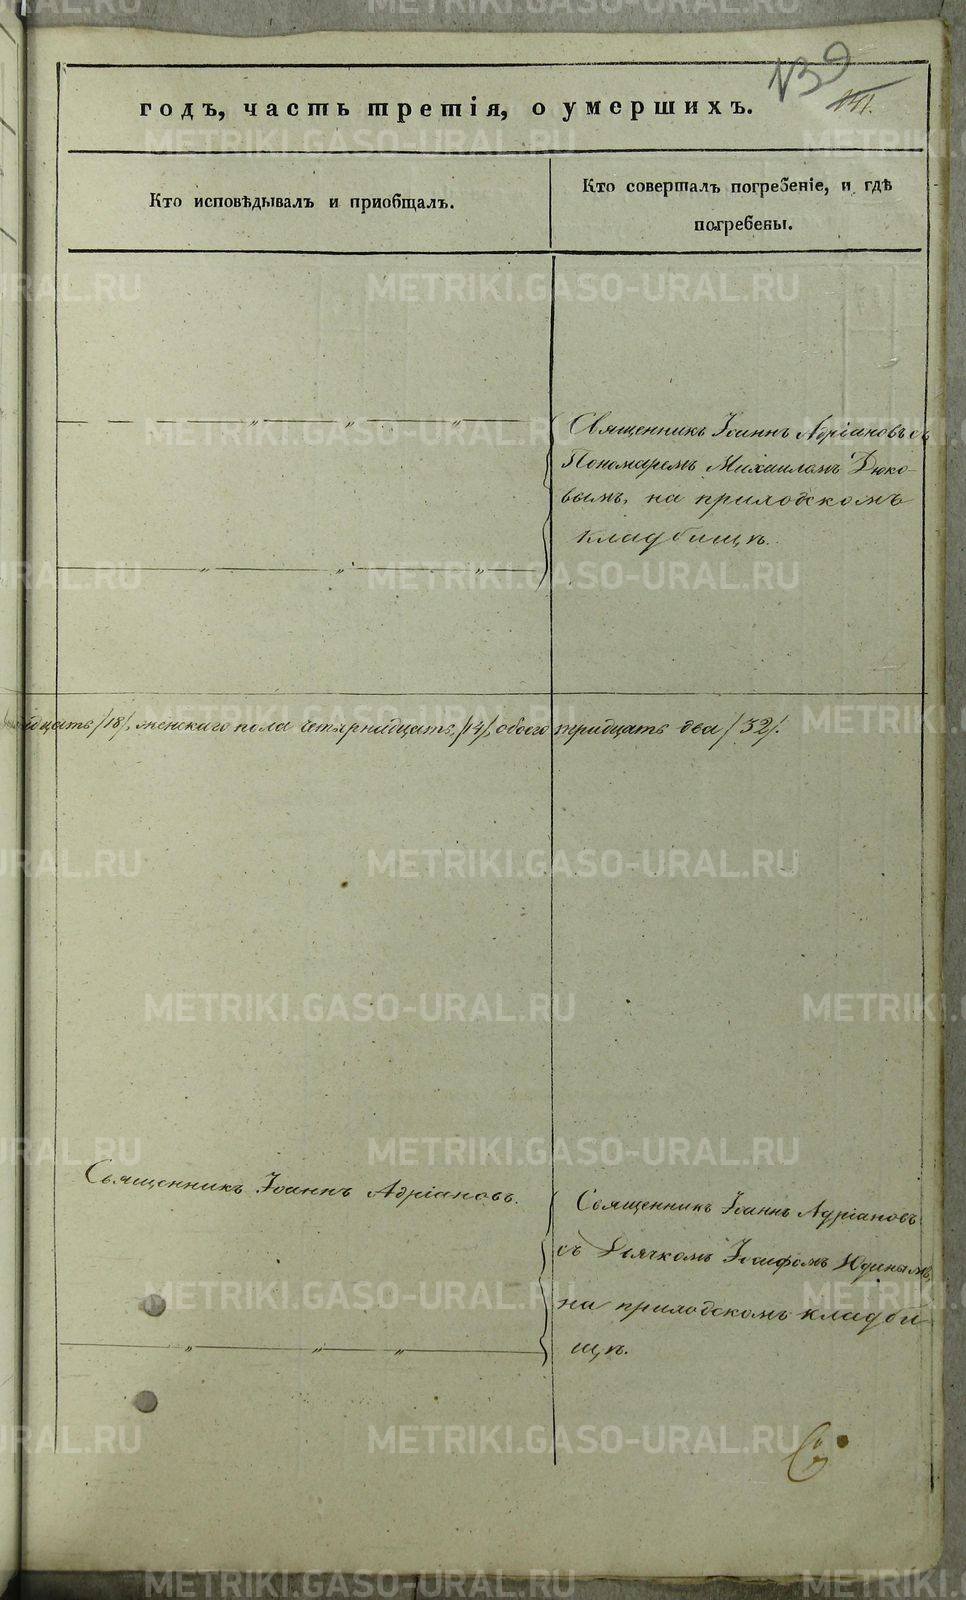 139
141.
годъ, часть третія, о умершихъ.
Кто исповѣдывалъ и приобщалъ.
Кто совершалъ погребеніе, и гдѣ
погребены.
Священникъ Іоаннъ Адріановъ съ
Пономаремъ Михаиломъ Дюко-
вымъ, на приходскомъ
кладбищѣ.
дцать /18/, женскаго пола четырнадцать, /14/, обоего тридцать два /32/.
Священникъ Іоаннъ Адріановъ.
Священникъ Іоаннъ Адріановъ
съ Дьячкомъ Іосифомъ Юдинымъ,
на приходскомъ кладби-
щѣ.
METRIKI.GASO-URAL.RU